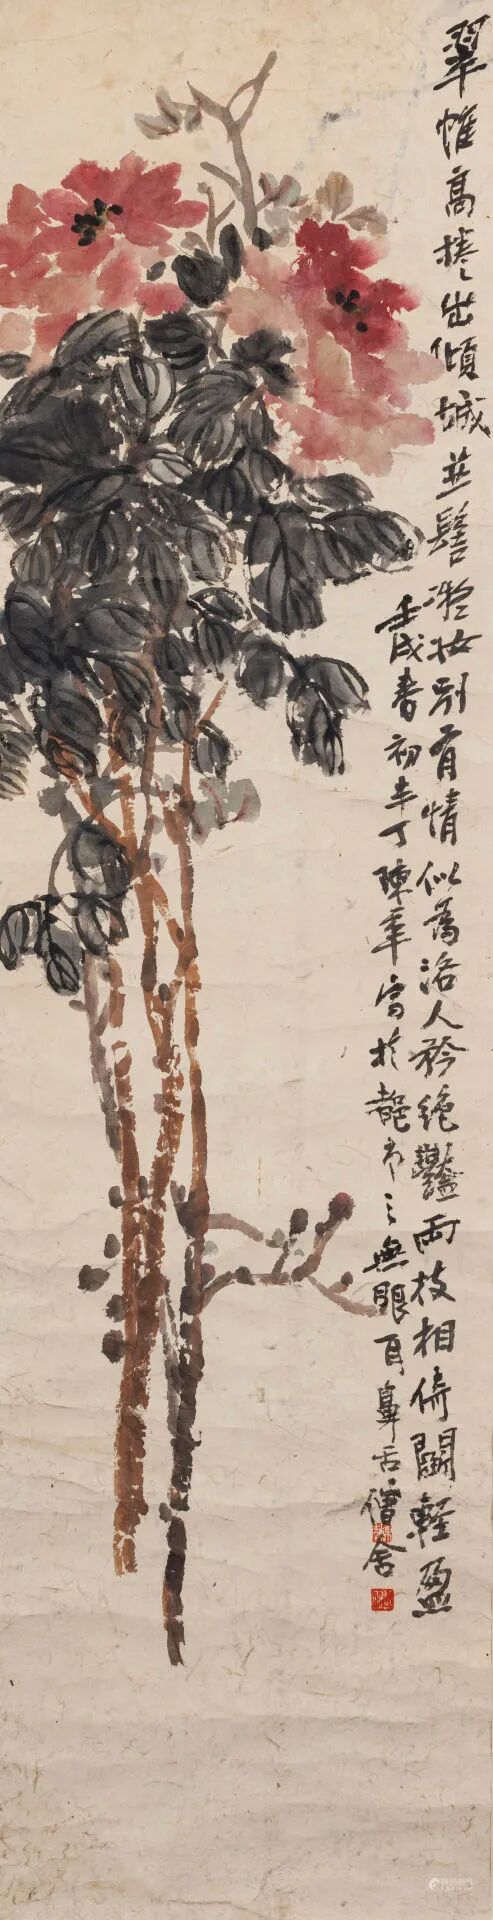 翠帷高捲出傾城並髻凝妝別有情似為洛人矜絕豔兩枝相倚鬭輕盈
壬戌春初半丁陳年寫於都市之無眼耳鼻舌僧舍